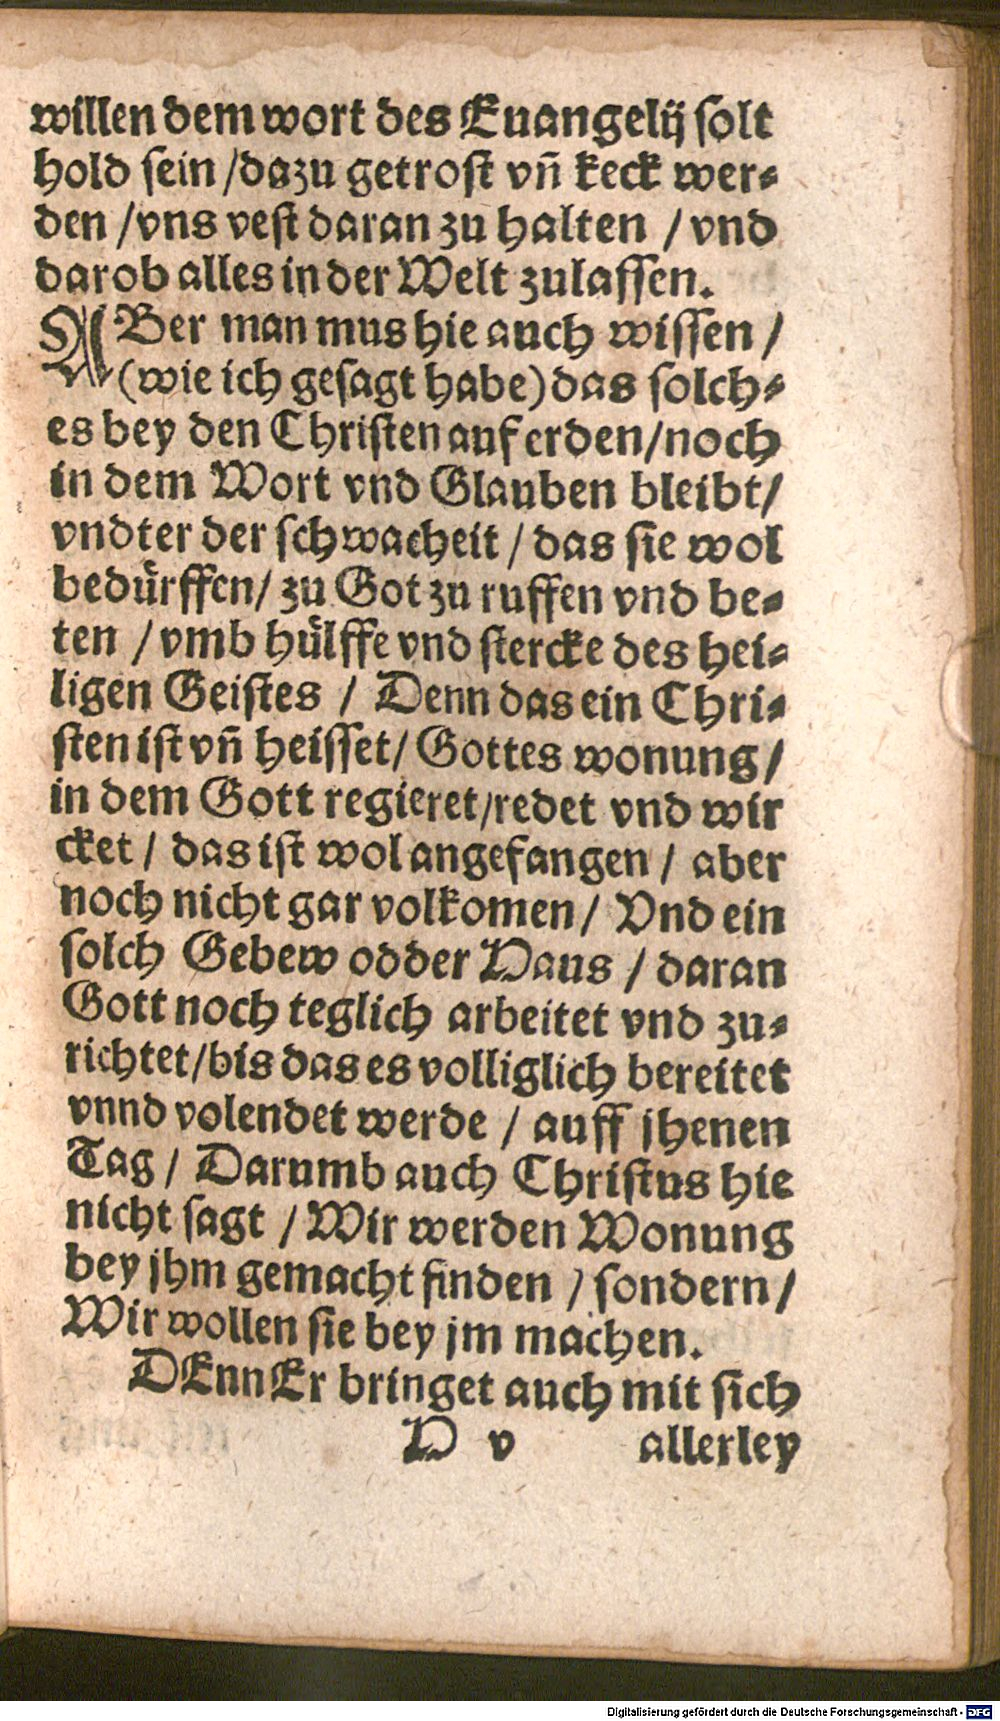 willen dem wort des Euangelij solt
hold sein /dazu getrost vn̄ keck wer⸗
den /vns vest daran zu halten / vnd
darob alles in der Welt zulassen.
ABer man mus hie auch wissen /
(wie ich gesagt habe) das solch⸗
es bey den Christen auf erden/noch
in dem Wort vnd Glauben bleibt/
vndter der schwacheit / das sie wol
bedürffen/ zu Got zu ruffen vnd be⸗
ten / vmb hülffe vnd stercke des hei⸗
ligen Geistes / Denn das ein Chri⸗
sten ist vn̄ heisset/ Gottes wonung/
in dem Gott regieret/redet vnd wir
cket / das ist wol angefangen / aber
noch nicht gar volkomen/ Vnd ein
solch Gebew odder Haus / daran
Gott noch teglich arbeitet vnd zu⸗
richtet/bis das es volliglich bereitet
vnnd volendet werde / auff jhenen
Tag/ Darumb auch Christus hie
nicht sagt / Wir werden Wonung
bey jhm gemacht finden / sondern/
Wir wollen sie bey jm machen.
DEnn Er bringet auch mit sich
H v allerley
Digitalisierung gefördert durch die Deutsche Forschungsgemeinschaft - DFG